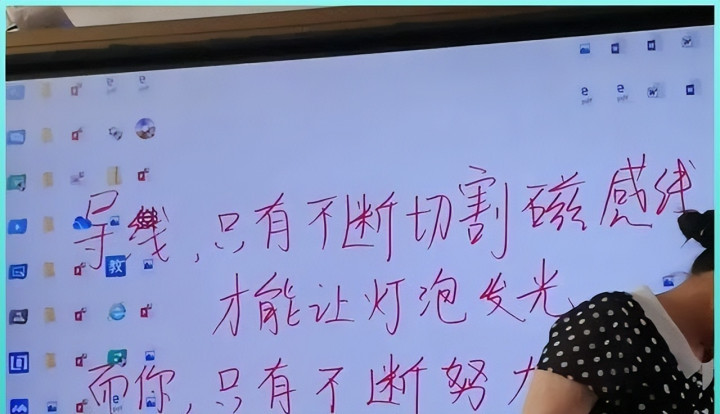 导线,只有不断切割磁感线
才能让灯泡发光
而你,只有不断努力
教